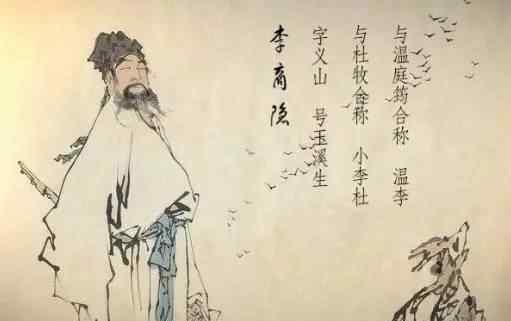 李商隐
字义山 号玉溪生
与杜牧合称 小李杜
与温庭筠合称 温李